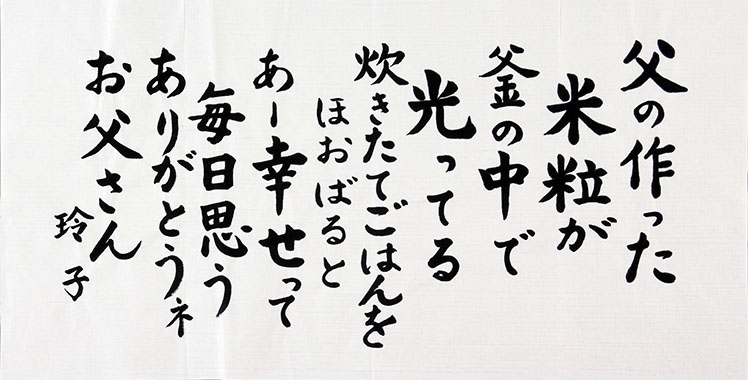 父の作った
米粒が
釜の中で
光ってる
炊きたてごはんを
ほおばると
あー幸せって
毎日思う
ありがとうネ
お父さん
玲子